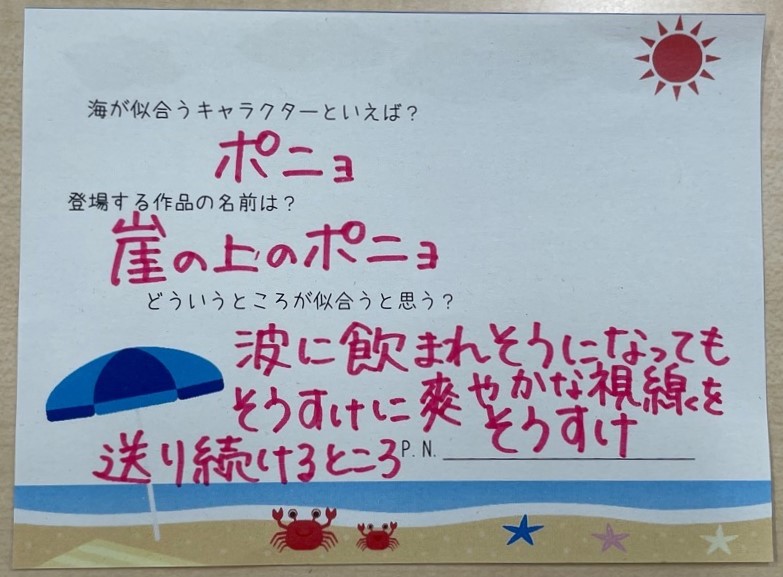 海が似合うキャラクターといえば？
ポニョ
登場する作品の名前は？
崖の上のポニョ
どういうところが似合うと思う？
波に飲まれそうになっても
そうすけに爽やかな視線を
送り続けるところ
P.N. そうすけ